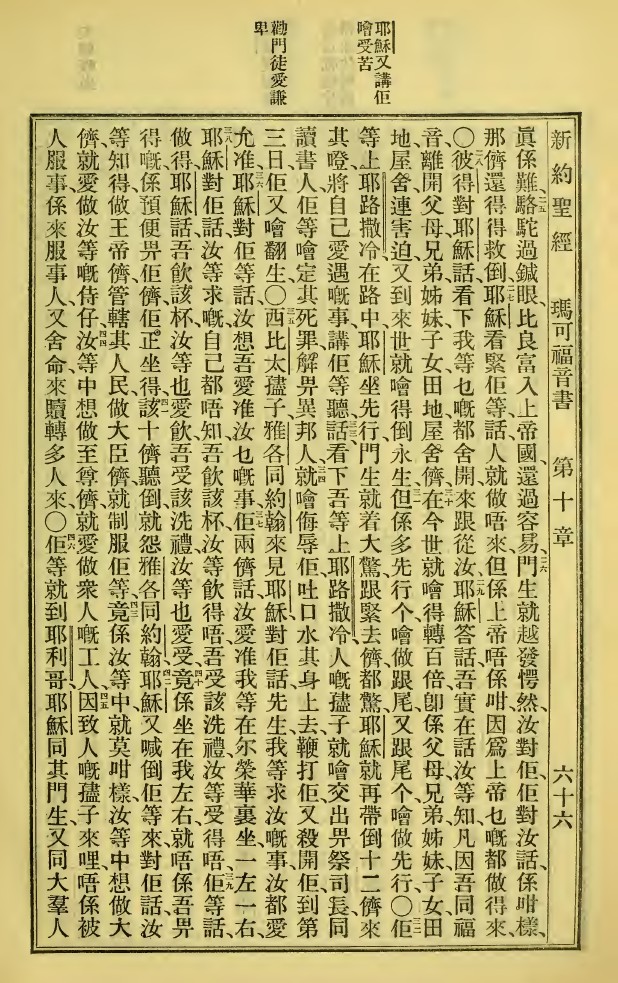 耶穌又講佢
噲受苦
勸門徒愛謙
卑
新約聖經 瑪可福音書 第十章 六十六
眞係難、二五駱駝過鍼眼、比良富入上帝國、還過容易、二六門生就越發愕然、汝對佢、佢對汝話、係咁樣、
那儕還得得救倒、二七耶穌看緊佢等話、人就做唔來、但係上帝唔係咁、因爲上帝乜嘅都做得來、
〇二八彼得對耶穌話、看下我等乜嘅都舍開來跟從汝、二九耶穌答話、吾實在話汝等知、凡因吾同福
音、離開父母兄弟姊妹子女田地屋舍儕、三十在今世就會得轉百倍、卽係父母兄弟姊妹子女田
地屋舍、連害迫、又到來世就噲得倒永生、三一但係多先行个噲做跟尾、又跟尾个噲做先行、〇三二佢
等上耶路撒冷、在路中、耶穌坐先行、門生就着大驚、跟緊去儕都驚、耶穌就再帶倒十二儕來
其噔、將自己愛遇嘅事講佢等聽、三三話看下吾等上耶路撒冷、人嘅孻子就噲交出畀祭司長、同
讀書人、佢等噲定其死罪、解畀異邦人、三四就噲侮辱佢、吐口水其身上去、鞭打佢、又殺開佢、到第
三日佢又噲翻生、〇三五西比太孻子雅各同約翰來見耶穌、對佢話、先生、我等求汝嘅事、汝都愛
允准、三六耶穌對佢等話、汝想吾愛准汝乜嘅事、三七佢兩儕話、汝愛准我等在尔榮華裏、坐一左一右、
三八耶穌對佢話、汝等求嘅、自己都唔知、吾飮該杯、汝等飮得唔、吾受該洗禮、汝等受得唔、三九佢等話、
做得、耶穌話、吾飮該杯、汝等也愛飮、吾受該洗禮、汝等也愛受、四十竟係坐在我左右、就唔係吾畀
得嘅、係預便畀佢儕、佢正坐得、四一該十儕聽倒就怨雅各同約翰、四二耶穌又喊倒佢等來、對佢話、汝
等知得做王帝儕管轄其人民、做大臣儕就制服佢等、四三竟係汝等中就莫咁樣、汝等中想做大
儕、就愛做汝等嘅侍仔、四四汝等中想做至尊儕、就愛做衆人嘅工人、四五因致人嘅孻子來哩、唔係被
人服事、係來服事人、又舍命來贖轉多人來、〇四六佢等就到耶利哥、耶穌同其門生、又同大羣人